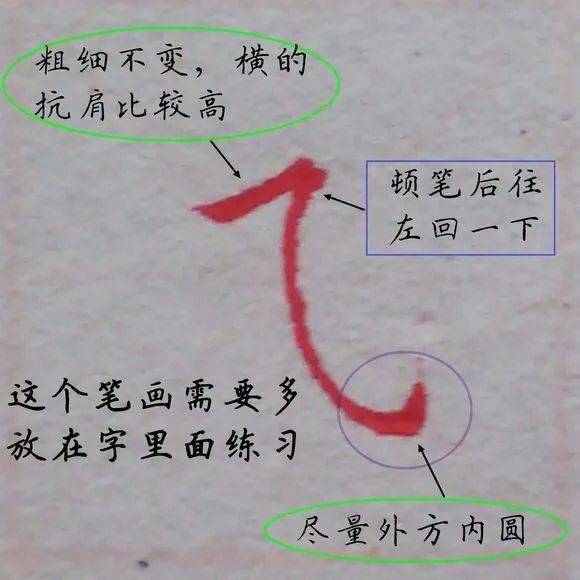 粗细不变，横的
抗肩比较高
顿笔后往
左回一下
这个笔画需要多
放在字里面练习
尽量外方内圆